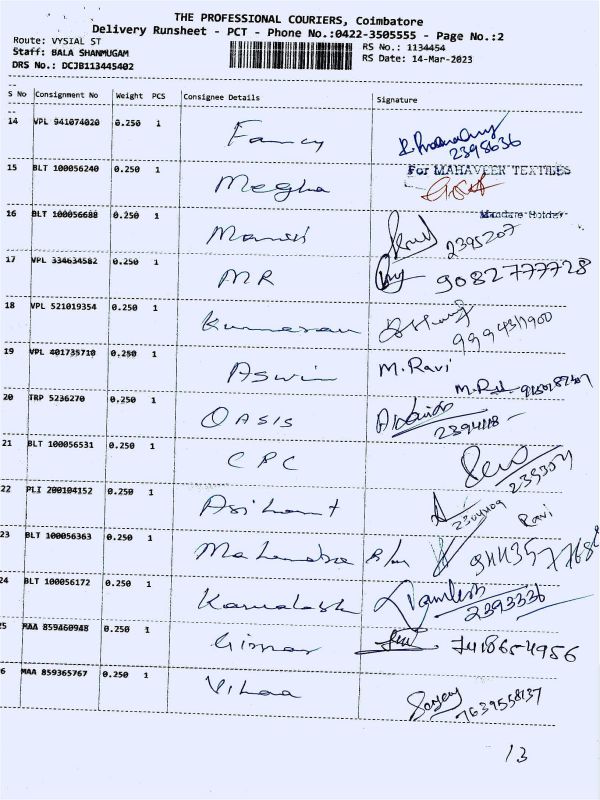 THE PROFESSIONAL COURIERS, Coimbatore
Delivery Runsheet - PCT - Phone No.:0422-3505555 - Page No.:2
Route: VYSIAL ST
Staff: BALA SHANMUGAM
DRS No.: DCJB113445402
RS No.: 1134454
RS Date: 14-Mar-2023
S No Consignment No Weight PCS Consignee Details Signature
14 VPL 941074020 0.250 1 Fancy 2398636
15 BLT 100056240 0.250 1 Megha For MAHAVEER TEXTILES
16 BLT 100056688 0.250 1 Manish 2395207
17 VPL 334634582 0.250 1 MR 9082777728
18 VPL 521019354 0.250 1 Kumaran 9994311900
19 VPL 401735710 0.250 1 Aswin M. Ravi
20 TRP 5236270 0.250 1 OASIS 2394118
21 BLT 100056531 0.250 1 CPC
22 PLI 200104152 0.250 1 Asihant Ravi
23 BLT 100056363 0.250 1 Mahendra
24 BLT 100056172 0.250 1 Kamalesh 2393336
25 MAA 859460948 0.250 1 7418654956
26 MAA 859365767 0.250 1 7639558137
13